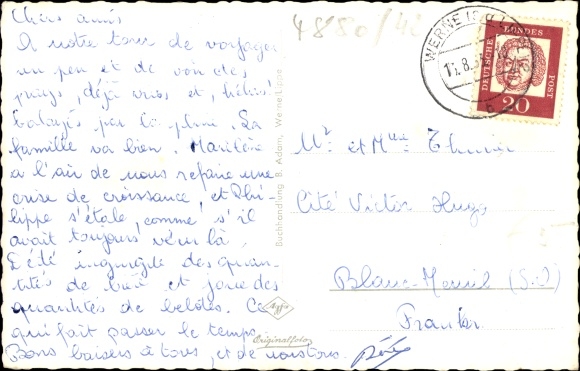 Chers amis
A notre tour de voyager
un peu et de voir des
pays, déjà vus et, hélas
balayés par la pluie. La
famille va bien. Marilène
a l'air de nous refaire une
crise de croissance, et Phi-
lippe s'étale, comme s'il
avait toujours vécu là.
D'été ingurgite des quan-
tités de bière et joue des
quantités de belotes. Ce
qui fait passer le temps.
Bons baisers à tous, et de nous tous.
4880/42
WERNE
11.8.
b
DEUTSCHE
BUNDESPOST
20
Mr et Mme
Cité Victor Hugo
Blanc-Mesnil (S.O)
Frankr.
Buchhandlung B. Adam, Werne/Lippe
Agfa
Originalfoto